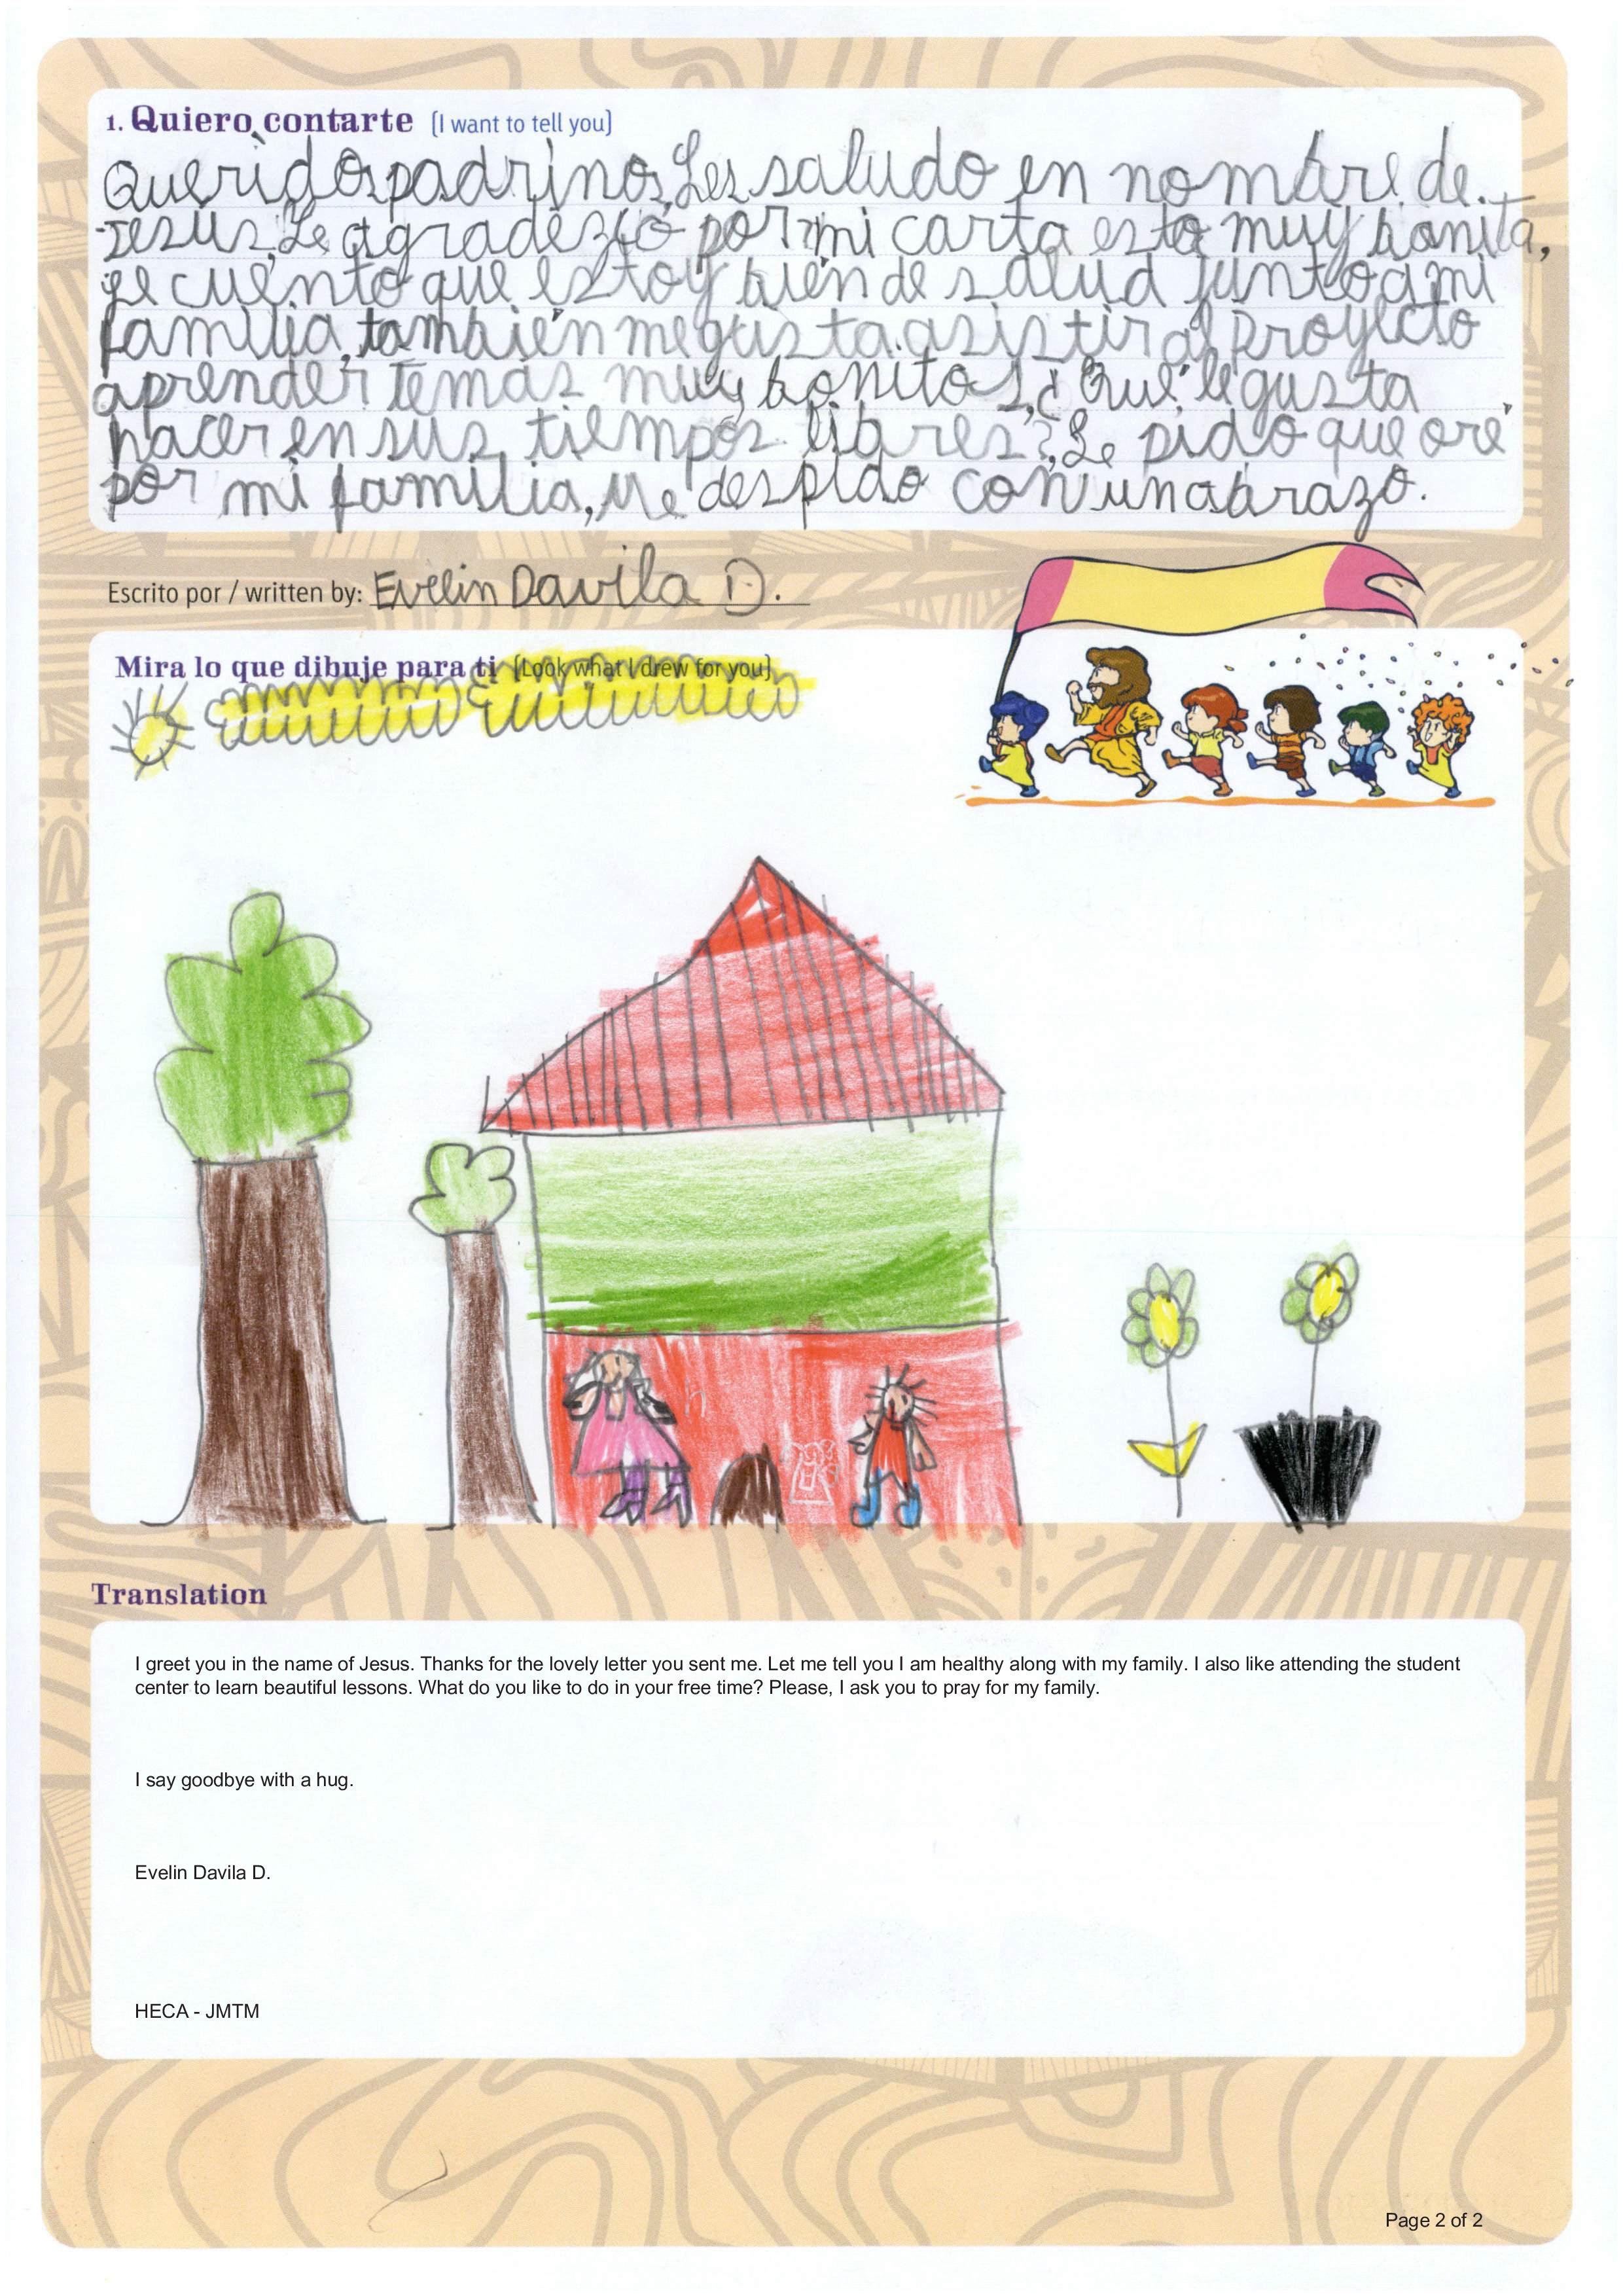 1. Quiero contarte (I want to tell you)
Queridos padrinos, Les saludo en nombre de
Jesús, Le agradezco por mi carta esta muy bonita,
le cuento que estoy bien de salud junto a mi
familia, también me gusta asistir al Proyecto
aprender temas muy bonitos, ¿Qué le gusta
hacer en sus tiempos libres?, Le pido que ore
por mi familia, Me despido con un abrazo.
Escrito por / written by: Evelin Davila D.
Mira lo que dibuje para ti (Look what I drew for you)
Translation
I greet you in the name of Jesus. Thanks for the lovely letter you sent me. Let me tell you I am healthy along with my family. I also like attending the student
center to learn beautiful lessons. What do you like to do in your free time? Please, I ask you to pray for my family.
I say goodbye with a hug.
Evelin Davila D.
HECA - JMTM
Page 2 of 2